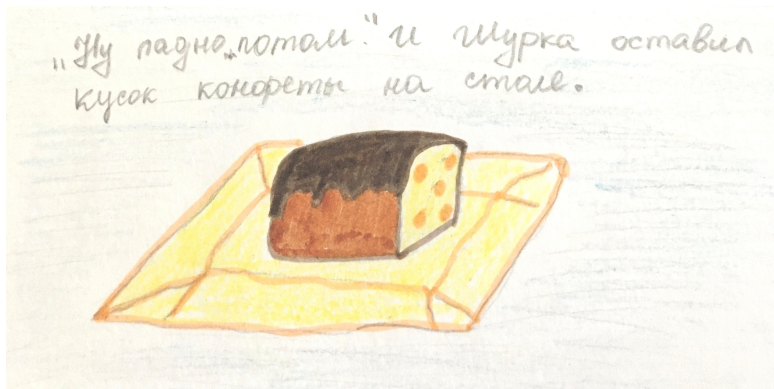 „Ну ладно, потом." И Шурка оставил
кусок конфеты на столе.